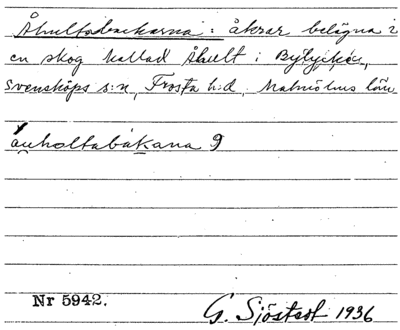 Åhultsbackarna: åkrar belägna i
en skog kallad Åhult i
Svensköps s:n, Frosta h:d, Malmöhus län
auholtabákana 9
Nr 5942. G. Sjöstedt 1936